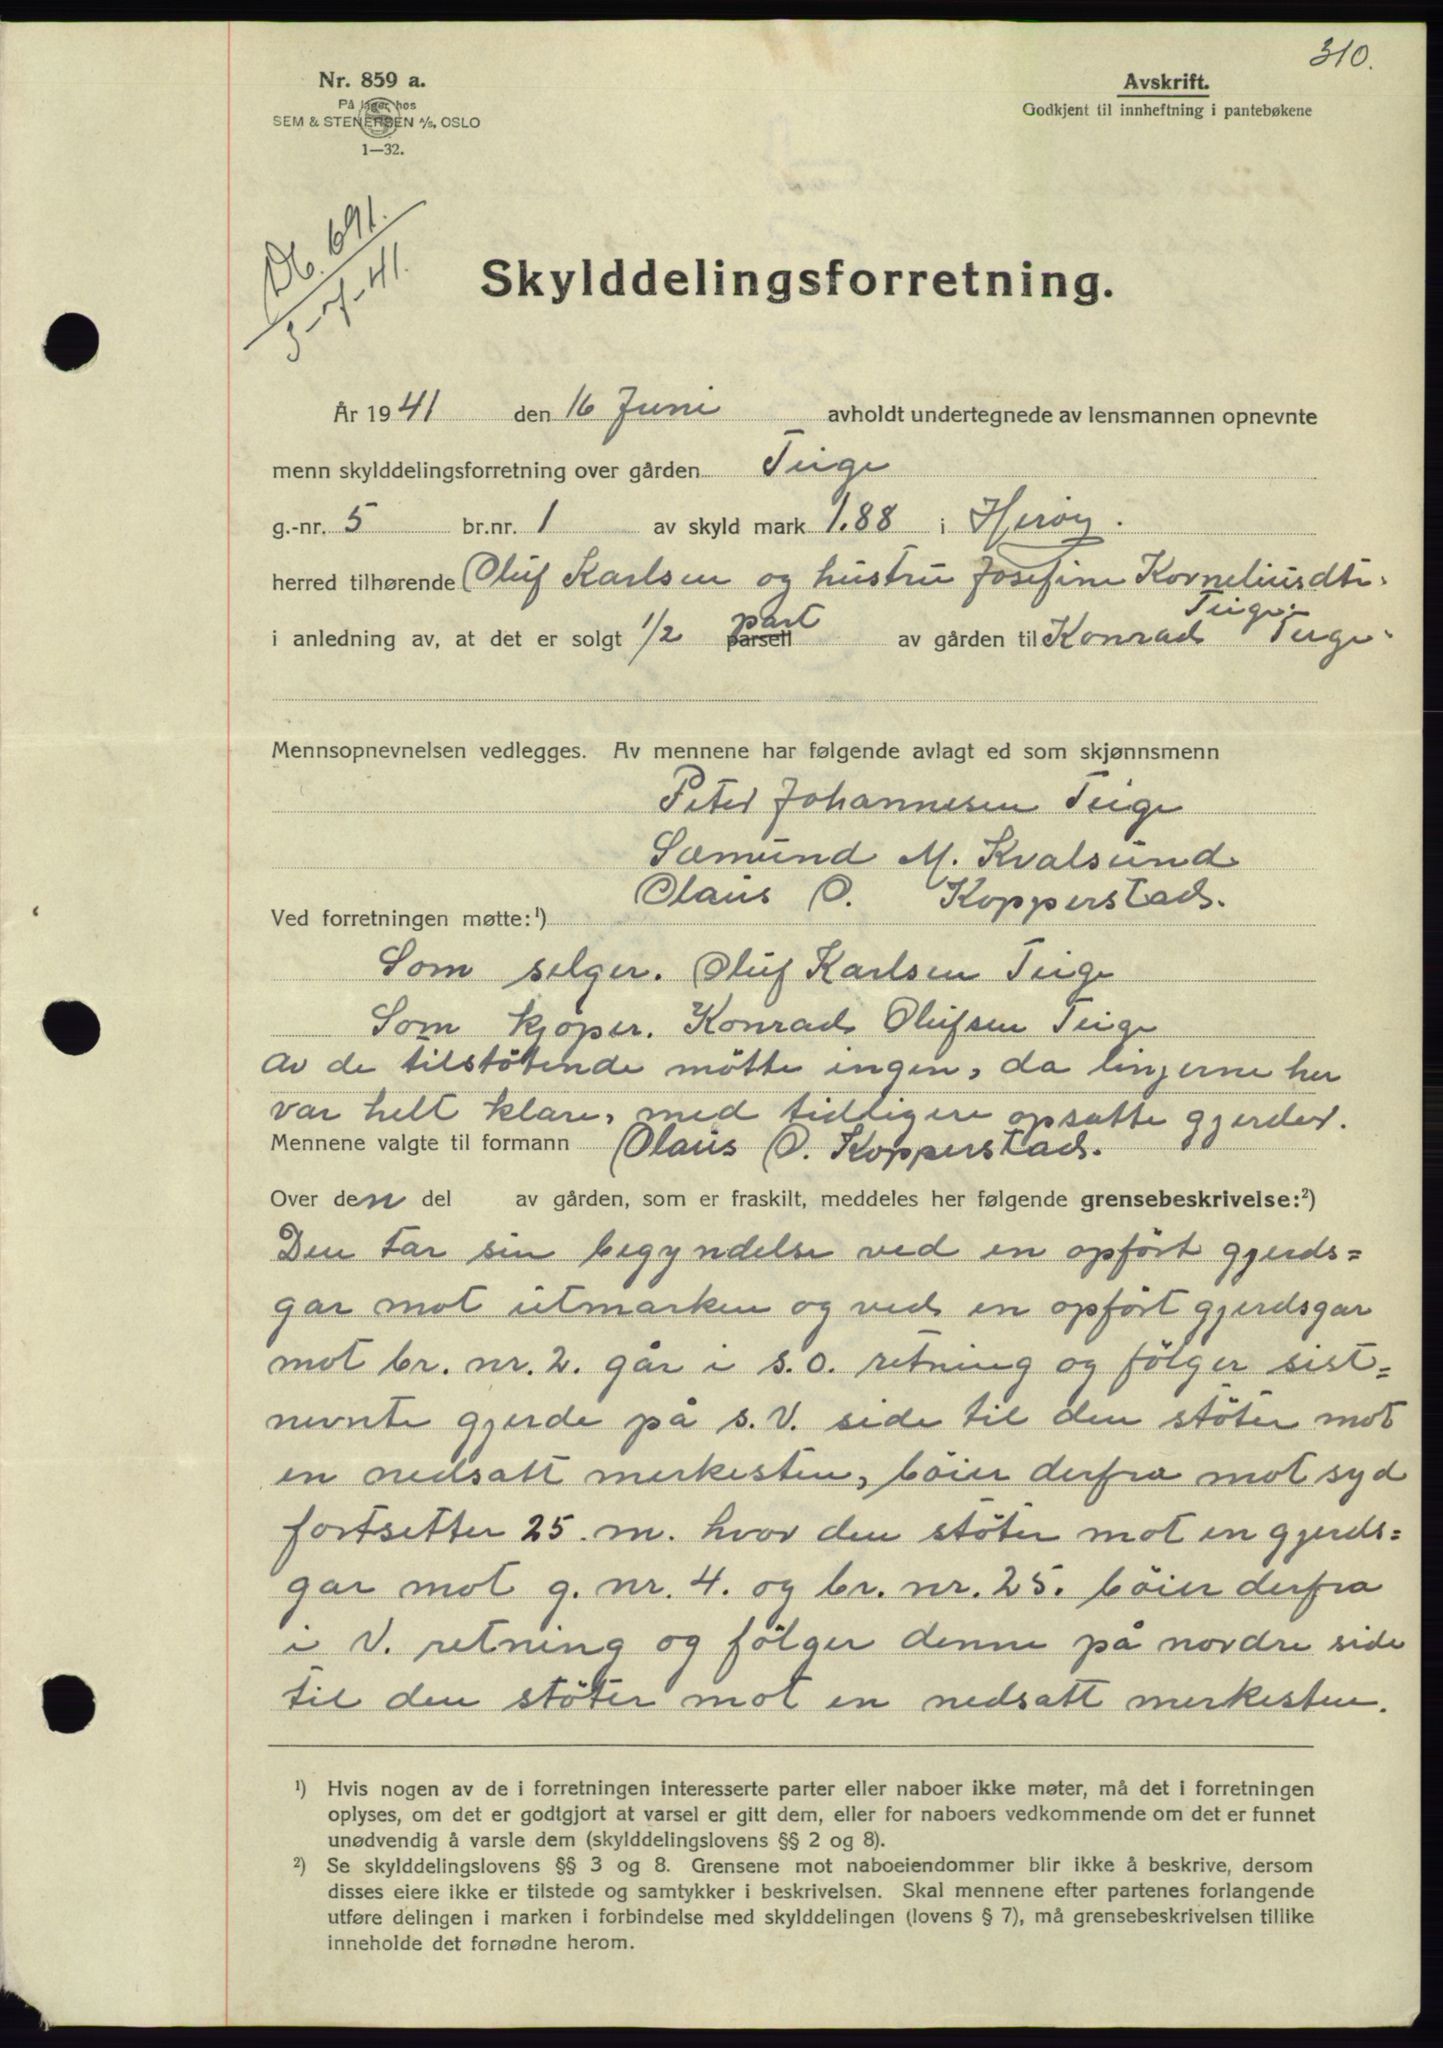 310.
Nr. 859 a.
På lager hos
SEM & STENERSEN A/S, OSLO
1—32.
Avskrift.
Godkjent til innheftning i pantebøkene
Db. 691.
3-7-41.
Skylddelingsforretning.
År 1941 den 16 Juni avholdt undertegnede av lensmannen opnevnte
menn skylddelingsforretning over gården Teige
g.-nr. 5 br.nr. 1 av skyld mark 1.88 i Herøy.
herred tilhørende Oluf Karlsen og hustru Josefine Korneliusdtr.
Teige.
i anledning av, at det er solgt 1/2 parsell part av gården til Konrad Teige.
Mennsopnevnelsen vedlegges. Av mennene har følgende avlagt ed som skjønnsmenn
Peter Johannesen Teige
Sæmund M. Kvalsund
Olaus O. Kopperstad.
Ved forretningen møtte:¹)
Som selger. Oluf Karlsen Teige
Som kjøper. Konrad Olufsen Teige
Av de tilstötende mötte ingen, da linjerne her
var helt klare, med tidligere opsatte gjerder.
Mennene valgte til formann Olaus O. Kopperstad.
Over den del av gården, som er fraskilt, meddeles her følgende grensebeskrivelse:²)
Den tar sin begyndelse ved en opfört gjerds=
gar mot utmarken og ved en opfört gjerdsgar
mot br. nr. 2. går i s.o. retning og fölger sist=
nevnte gjerde på s.V. side til den stöter mot
en nedsatt merkesten, böier derfra mot syd
fortsetter 25 m. hvor den stöter mot en gjerds=
gar mot g. nr. 4. og br. nr. 25. böier derfra
i V. retning og fölger denne på nordre side
til den stöter mot en nedsatt merkesten.
¹) Hvis nogen av de i forretningen interesserte parter eller naboer ikke møter, må det i forretningen
oplyses, om det er godtgjort at varsel er gitt dem, eller for naboers vedkommende om det er funnet
unødvendig å varsle dem (skylddelingslovens §§ 2 og 8).
²) Se skylddelingslovens §§ 3 og 8. Grensene mot naboeiendommer blir ikke å beskrive, dersom
disses eiere ikke er tilstede og samtykker i beskrivelsen. Skal mennene efter partenes forlangende
utføre delingen i marken i forbindelse med skylddelingen (lovens § 7), må grensebeskrivelsen tillike
inneholde det fornødne herom.